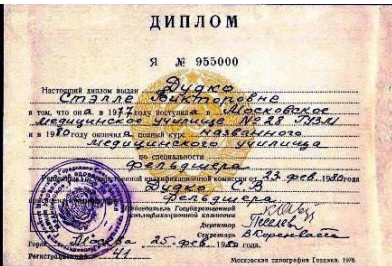 ДИПЛОМ
Я № 955000
Настоящий диплом выдан Дудко
Стэлле Викторовне
в том, что она в 1977 году поступила в Московское
медицинское училище № 28 ГУЗМ
и в 1980 году окончила полный курс названного
медицинского училища
по специальности
фельдшера
Решением Государственной квалификационной комиссии от 23 фев 1980 года
Дудко С. В
фельдшера
Председатель Государственной
квалификационной комиссии
Директор
Секретарь
Город Москва 25 фев 1980 года.
Регистрационный 41
Московская типография Гознака. 1976.